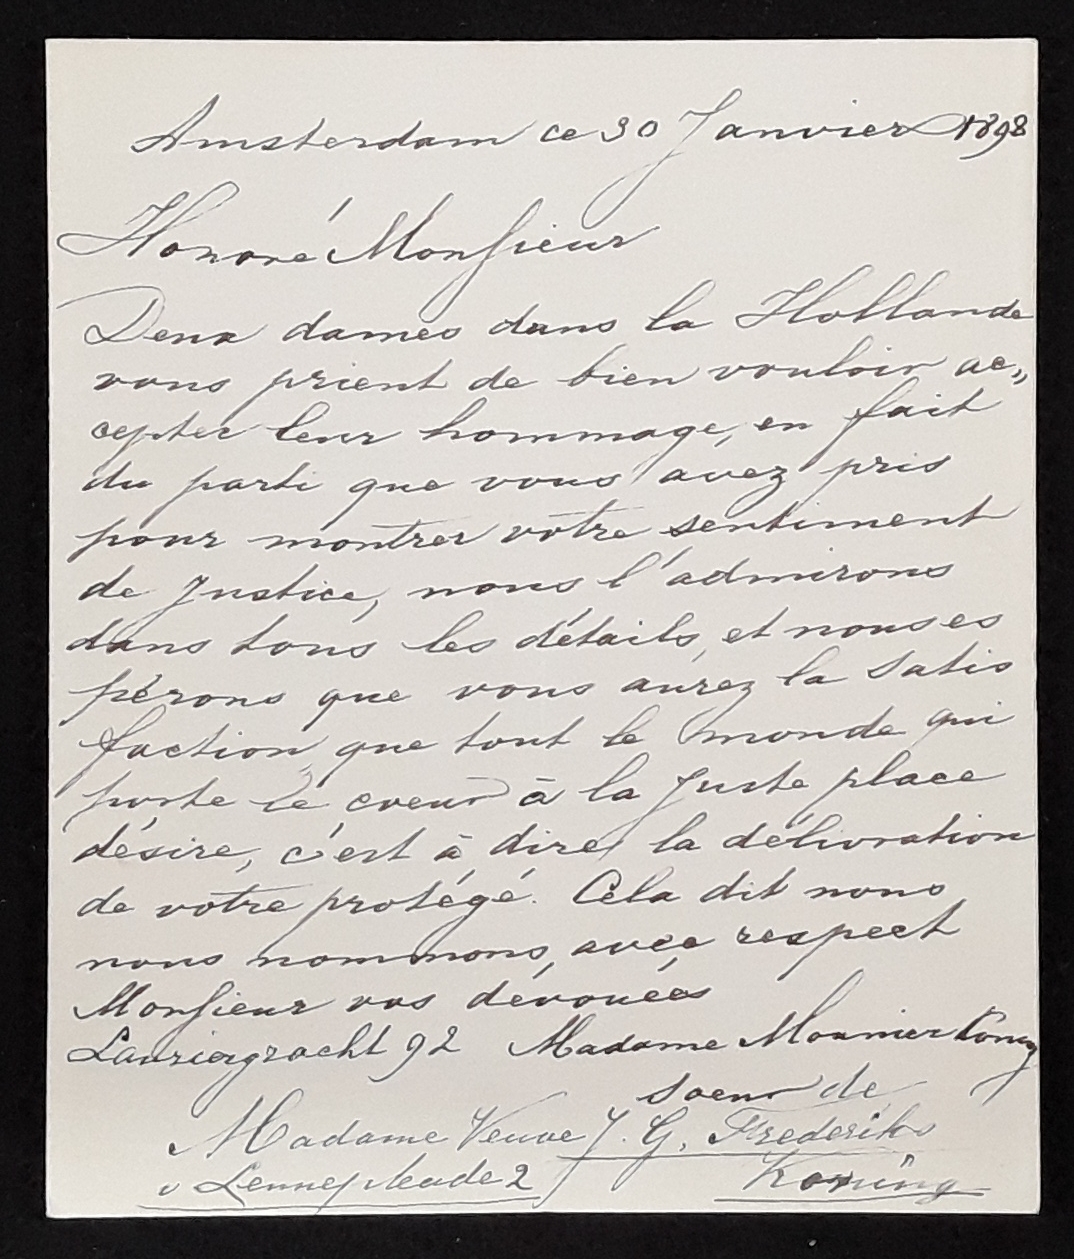 Amsterdam ce 30 Janvier 1898
Honoré Monsieur
Deux dames dans la Hollande
vous prient de bien vouloir ac„
cepter leur hommage, en fait
du parti que vous avez pris
pour montrer votre sentiment
de Justice, nous l'admirons
dans tous les détails, et nous es
pérons que vous aurez la satis
faction, que tout le monde qui
porte le coeur à la juste place
désire, c'est à dire la délivration
de votre protégé. Cela dit nous
nous nommons, avec respect
Monsieur vos dévouées
Lauriergracht 92 Madame Mounier Koning
soeur de
Madame Veuve J. G. Frederiks
v Lennepkade 2 Koning